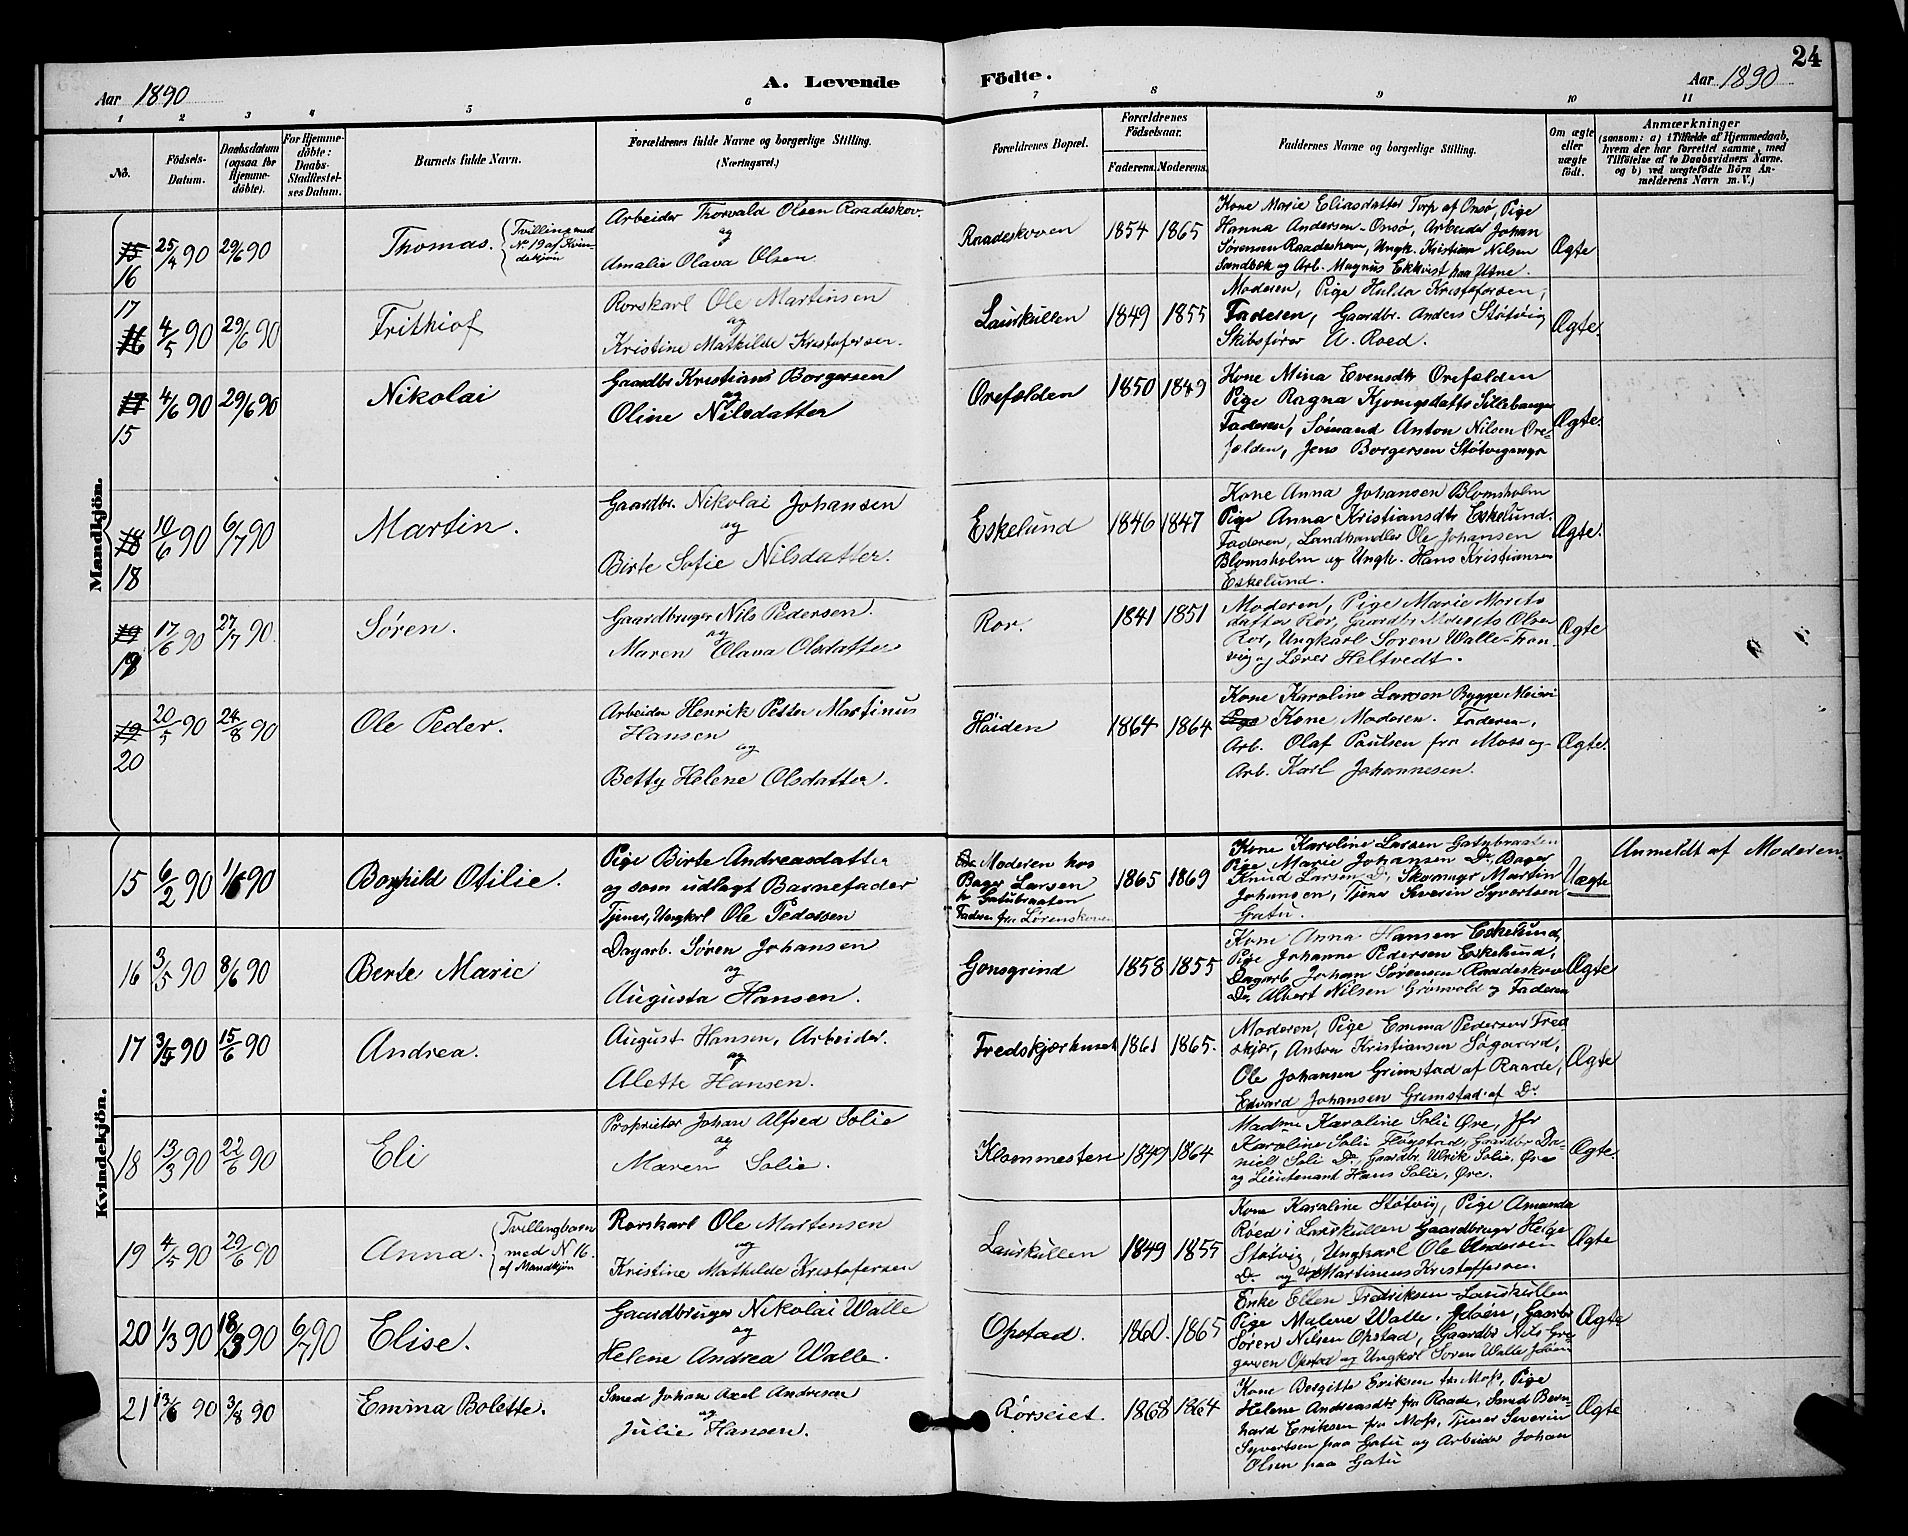 24
Aar 1890
A. Levende Födte.
Aar 1890
1 2 3 4 5 6 7 8 9 10 11
No.
Födsels-Datum.
Daabsdatum (ogsaa for Hjemmedöbte).
For Hjemmedöbte: Daabs-Stadfæstelses Datum.
Barnets fulde Navn.
Forældrenes fulde Navne og borgerlige Stilling.
(Næringsvei.)
Forældrenes Bopæl.
Forældrenes Födselsaar.
Faderens. Moderens.
Faddernes Navne og borgerlige Stilling.
Om ægte eller uægte födt.
Anmærkninger
(saasom: a) i Tilfælde af Hjemmedaab, hvem der har forrettet samme, med Tilföielse af to Daabsvidners Navne. og b) ved uægtefödte Börn Anmelderens Navn m. V.)
Mandkjön.
15 16
25/4 90
29/6 90
Thomas.
Tvilling med
No 19 af Kvin-
dekjön
Arbeider Thorvald Olsen Raadeskov.
og
Amalie Olava Olsen
Raadeskoven
1854 1865
Kone Marie Eliasdatter Torp af Onsö, Pige
Hanna Andersen Onsö, Arbeider Johan
Sörensen Raadeskoven, Ungk. Kristian Nilsen
Sandbæk og Arb. Magnus Ekkvist paa Utne.
Ægte
17 16
4/5 90
29/6 90
Frithiof
Rorskarl Ole Martinsen
og
Kristine Mathilde Kristofersen.
Laurkullen
1849 1855
Moderen, Pige Hulda Kristofersen,
Faderen, Gaardbr. Anders Stötvig
Skibsförer A. Roed.
Ægte.
17 15
4/6 90
29/6 90
Nikolai
Gaardbr Kristians Borgersen
og
Oline Nilsdatter
Orefælden
1850 1849
Kone Mina Evensdtr Orefælden
Pige Ragna
Faderen, Sömand Anton Nilsen Ore-
fælden, Jens Borgersen Stötvigengr
Ægte.
18 18
10/6 90
6/7 90
Martin.
Gaardbr. Nikolai Johansen
og
Birte Sofie Nilsdatter.
Eskelund
1846 1847
Kone Anna Johansen Blomsholm
Pige Anna Kristiansdtr Eskelund.
Faderen, Landhandler Ole Johansen
Blomsholm og Ungk. Hans Kristiansen
Eskelund.
Ægte.
19 19
17/6 90
27/7 90.
Sören.
Gaardbruger Nils Pedersen.
og
Maren Olava Olsdatter
Ror.
1841 1851
Moderen, Pige Marie Morits
datter Ror, Gaardbr Morits Olsen
Ror, Ungkarl Sören Walle Tron
vig og Lærer Heltvedt.
Ægte
19 20
20/5 90
24/8 90
Ole Peder.
Arbeider Henrik Petter Martinus
Hansen
og
Betty Helene Olsdatter.
Höiden
1864 1864
Kone Karoline Larsen Bygge Meieri
Pige Kone Moderen. Faderen,
Arb. Olaf Paulsen fra Moss og
Arb. Karl Johannesen.
Ægte.
Kvindekjön.
15
6/2 90
1/6 90
Borghild Otilie.
Pige Birte Andreasdatter
og som udlagt Barnefader
Tjener, Ungkarl Ole Pedersen
Moderen hos
Bager Larsen
Gatubraaten
Faderen fra Lörenskoven
1865 1869
Kone Karoline Larsen Gatubraaten
Pige Marie Johansen Do, Bager
Knud Larsen Do, Skomagr Martin
Johansen, Tjener Severin Syvertsen
Gatu.
Uægte
Anmeldt af Moderen.
16
3/5 90
8/6 90
Berte Marie
Dagarb. Sören Johansen
og
Augusta Hansen.
Gonsgrind
1858 1855
Kone Anna Hansen Eskelund,
Pige Johanne Pedersen Eskelund,
Dagarb Johan Sörensen Raadeskov
Do, Albert Nilsen Grönvold og Faderen
Ægte
17
3/4 90
15/6 90
Andrea.
August Hansen, Arbeider.
og
Alette Hansen.
Fredskjærhuset
1861 1865.
Moderen, Pige Emma Pedersen Fred
skjær, Anton Kristiansen Sögaard,
Ole Johansen Grimstad af Raade,
Edvard Johansen Grimstad af Do
Ægte
18
13/3 90
22/6 90
Eli
Proprietær Johan Alfred Solie
og
Maren Solie.
Klommesten
1849 1864
Madme Karoline Solie Öre, Jfr
Karoline Solie Flogstad, Gaardbr Da-
niel Soli Do, Gaardbr Ulrik Solie, Öre
og Lieutenant Hans Solie, Öre.
Ægte.
19
4/5 90
29/6 90
Anna.
Tvillingbarn
med N 16.
af Mandkjön
Rorskarl Ole Martinsen
og
Kristine Mathilde Kristofersen
Laurkullen
1849 1855
Kone Karoline Stötvig, Pige Amanda
Röed i Laurkullen Gaardbruger Helge
Stötvig, Ungkarl Ole Andersen
Do og Martinius Kristoffersen.
Ægte
20
1/3 90
18/3 90
6/7 90
Elise.
Gaardbruger Nikolai Walle
og
Helene Andrea Walle.
Opstad.
1860. 1865
Enke Ellen Fredriksen Laurkullen
Pige Malene Walle Jelöen, Gaardbr
Sören Nilsen Opstad, Gaardbr Nils Gre-
gersen Opstad og Ungkarl Sören Walle Jelöen
Ægte
21
13/6 90
3/8 90
Emma Bolette.
Smed Johan Axel Andresen
og
Julie Hansen.
Rörseiet.
1868 1864
Kone Bergitte Eriksen fra Moss, Pige
Helene Andreasdtr fra Raade, Smed Bern-
hard Eriksen fra Moss, Tjener Severin
Syvertsen paa Gatu og Arbeider Johan
Olsen paa Gatu
Ægte